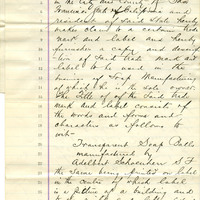 in the City and County of San
Francisco State of California and
resident of said State hereby
makes claim to a certain trade
mark and label and hereby
furnishes a copy and descrip
tion of said trade mark and
label to be used in the
business of Soap Manufacturing
of which he is the sole owner
The title of the said trade
mark and label consists of
the words and forms and
characters as follows to
wit-
Transparent Soap Balls
manufactured by
Adelbert Schwenker S.F.
the same being printed on label
in the centre of which label
is a picture of a building and